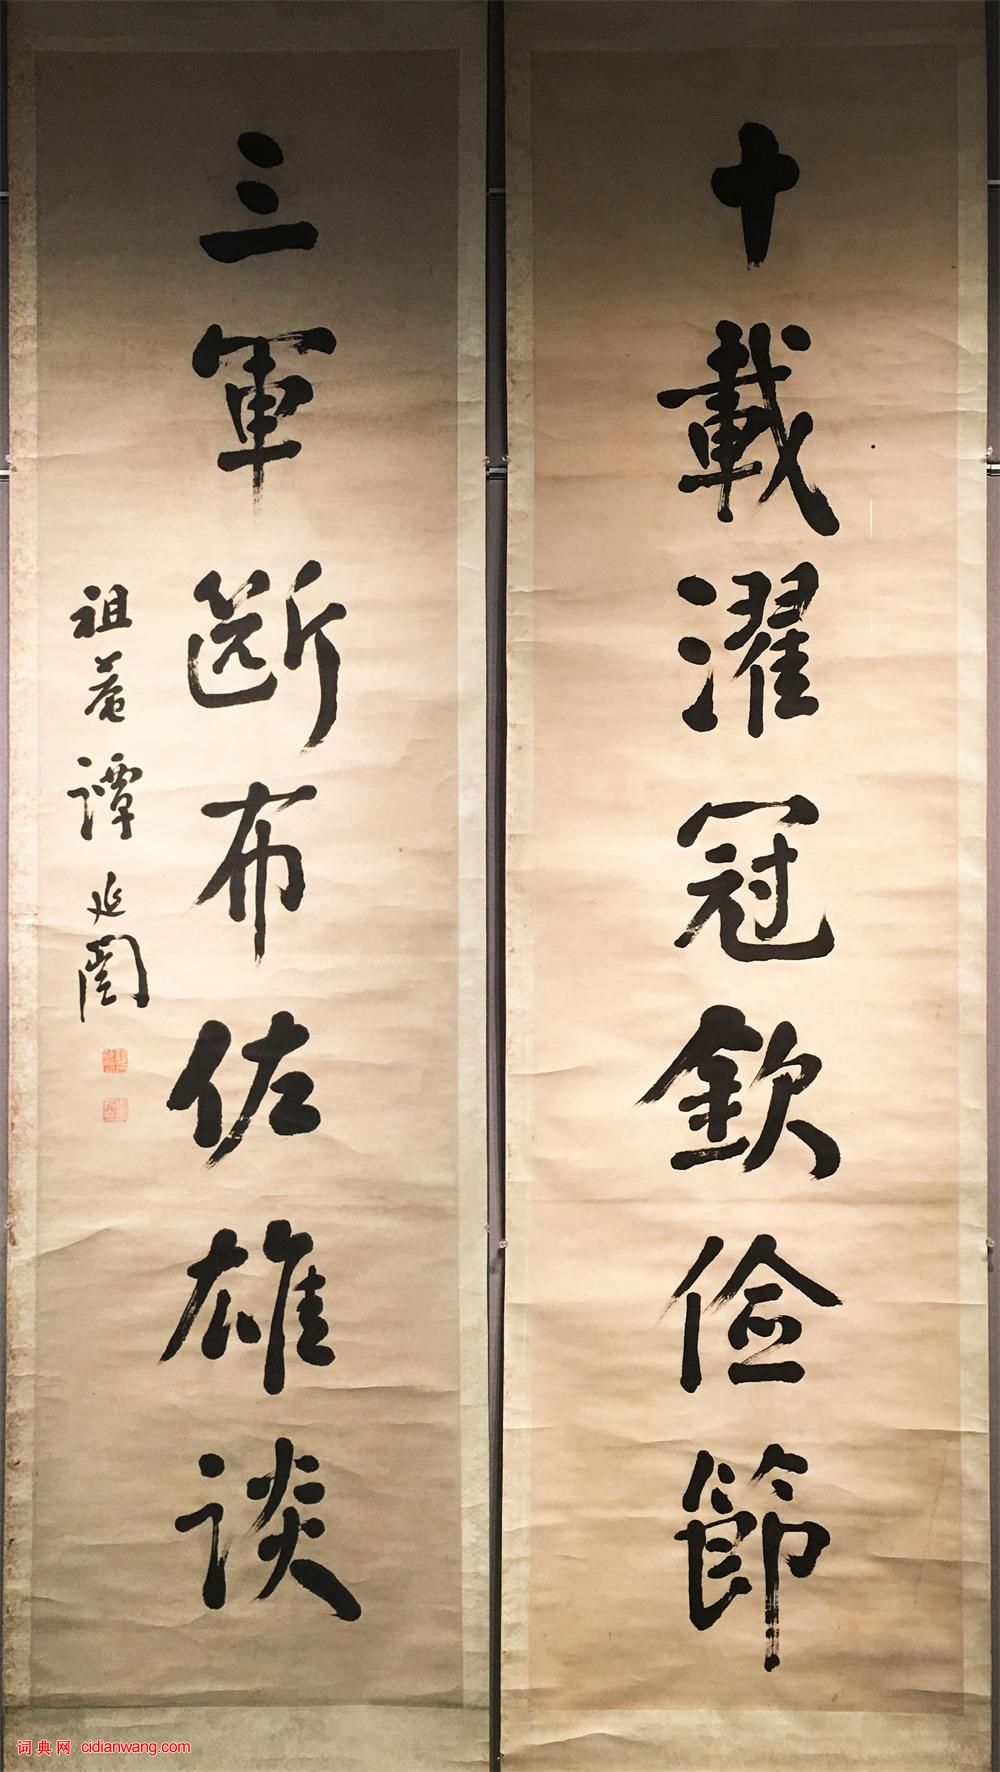 十載濯冠欽儉節
三軍斷布佐雄談
祖菴譚延闓
词典网 cidianwang.com